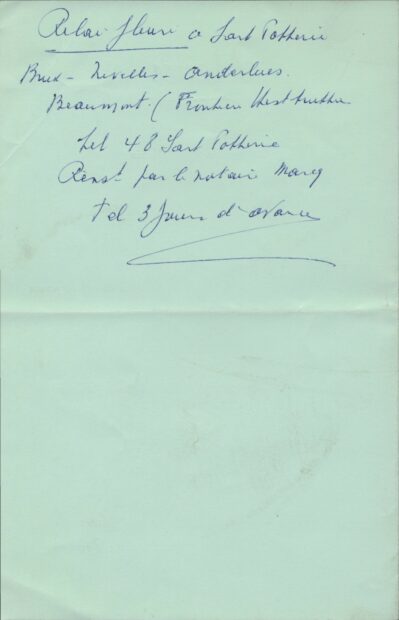 Relai fleuri a Sart Potterie
Brux - Nivelles - Anderlues.
Beaumont (
Tel 48 Sart Potterie
Renst par le notaire Marcq
Tel 3 jours d'avance